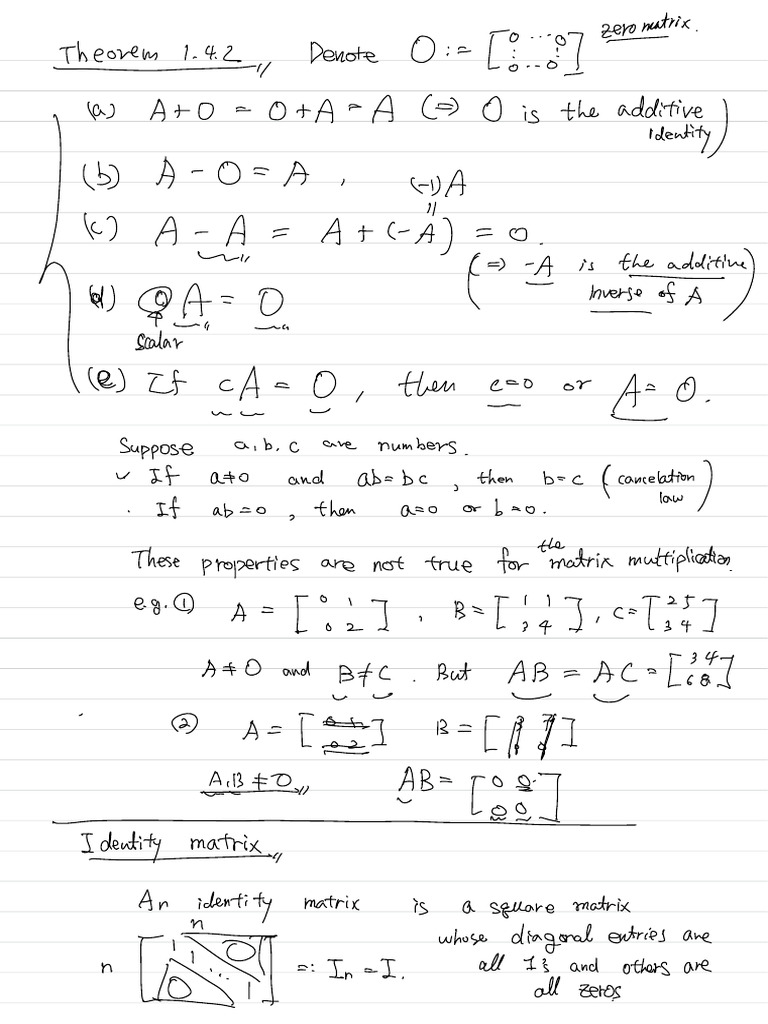 Theorem 1.4.2 Denote O := [0 ... 0 : : 0 .. 0] zero matrix.
(a) A + O = O + A = A (⇒ O is the additive identity)
(b) A - O = A ,
(-1)A
(c) A - A = A + (-A) = 0.
(⇒ -A is the additive inverse of A)
(d) 0 A = O
scalar
(e) If cA = O , then c=0 or A = O.
Suppose a, b, c are numbers.
✓ If a≠0 and ab = bc , then b=c (cancelation law)
· If ab=0 , then a=0 or b=0.
These properties are not true for the matrix multiplication.
e.g. ① A = [0 1 0 2] , B = [1 1 3 4] , C = [2 5 3 4]
A ≠ O and B ≠ C . But AB = AC = [3 4 6 8]
② A = [0 1 0 2] B = [3 7 0 0]
A, B ≠ O AB = [0 0 0 0]
Identity matrix
An identity matrix is a square matrix
whose diagonal entries are
all 1's and others are
all zeros
n
n [1 1 ... 1 O O] =: In = I.